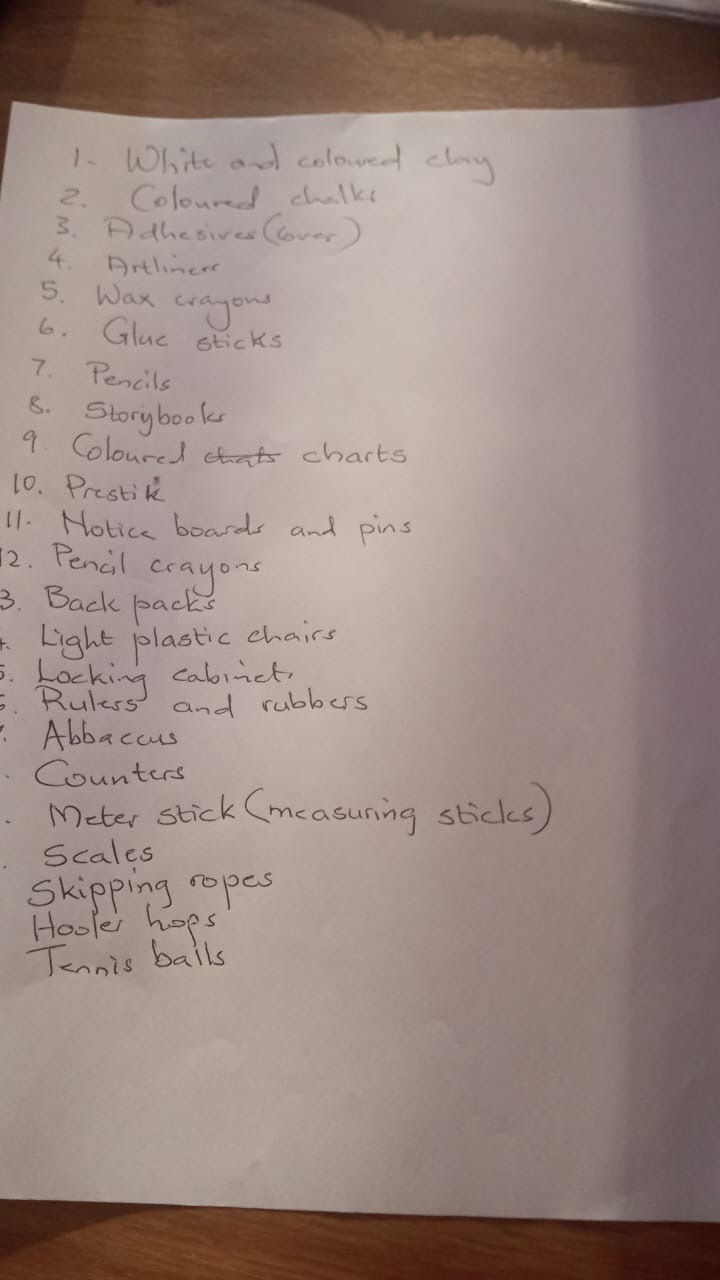 1. White and coloured clay
2. Coloured chalks
3. Adhesives (cover)
4. Artliners
5. Wax crayons
6. Glue sticks
7. Pencils
8. Storybooks
9. Coloured chats charts
10. Prestik
11. Notice boards and pins
12. Pencil crayons
3. Back packs
4. Light plastic chairs
5. Locking cabinet.
6. Rulers and rubbers
7. Abbaccus
. Counters
. Meter stick (measuring sticks)
. Scales
Skipping ropes
Hooler hops
Tennis balls